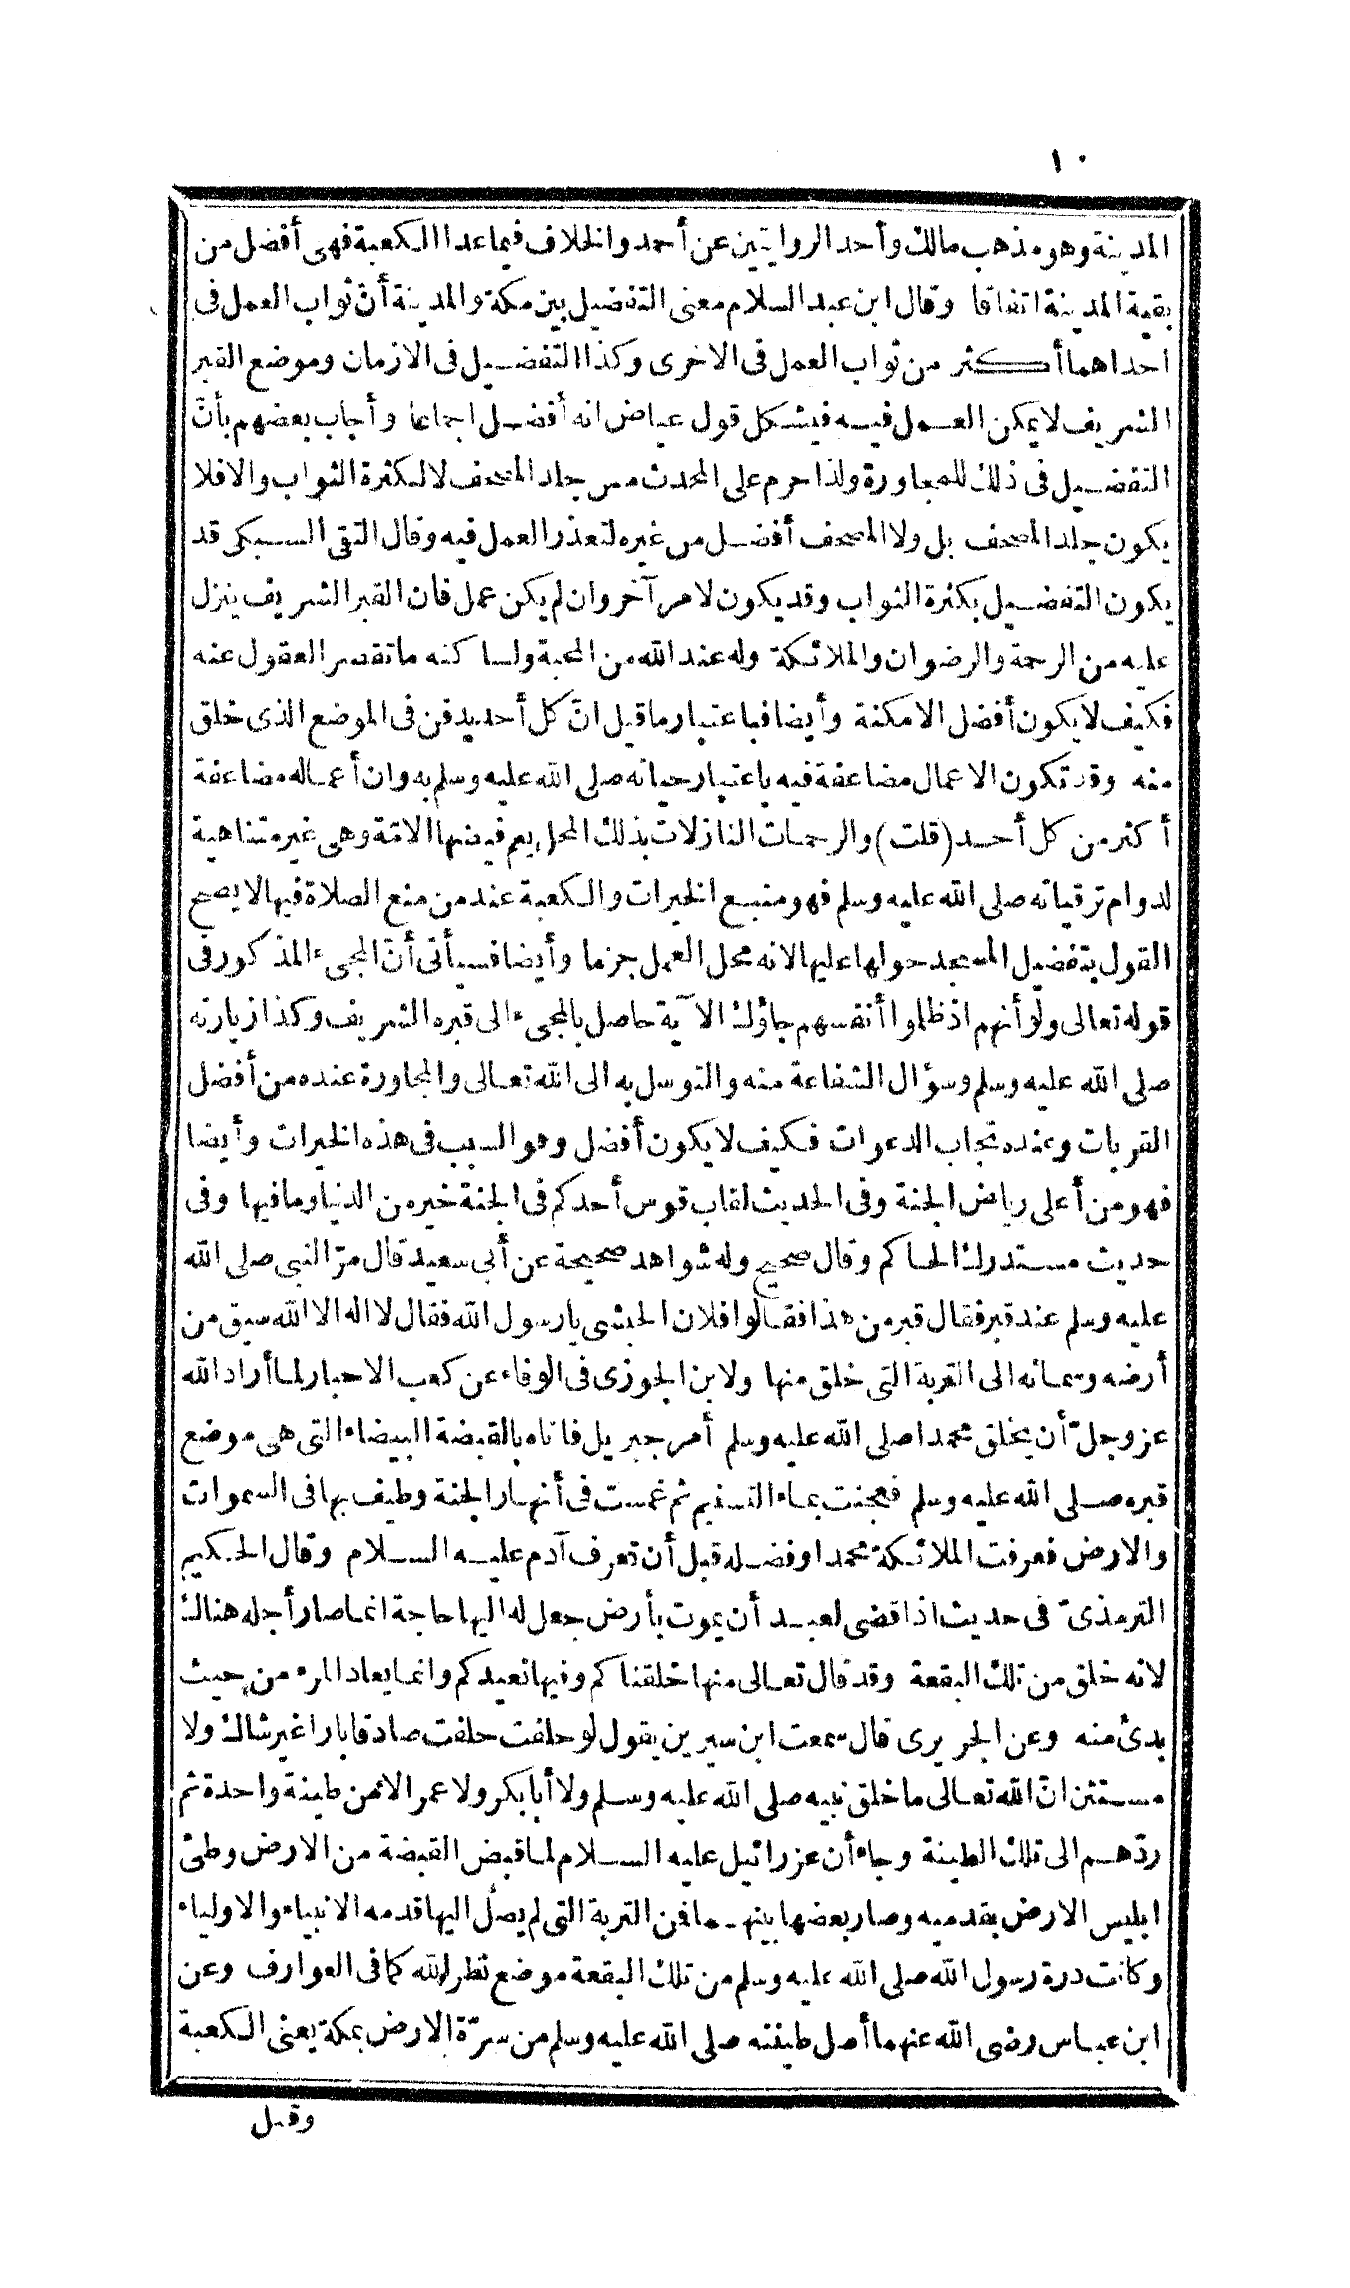 ١٠
المدينة وهو مذهب مالك وأحد الروايتين عن أحمد والخلاف فيما عدا الكعبة فهى أفضل من
بقية المدينة اتفاقا وقال ابن عبد السلام معنى التفضيل بين مكة والمدينة أنّ ثواب العمل فى
احداهما أكثر من ثواب العمل فى الاخرى وكذا التفضيل فى الازمان وموضع القبر
الشريف لا يمكن العمل فيه فيشكل قول عياض انه أفضل اجماعا وأجاب بعضهم بأنّ
التفضيل فى ذلك للمجاورة ولذا حرم على المحدث مس جلد المصحف لا لكثرة الثواب والا فلا
يكون جلد المصحف بل ولا المصحف أفضل من غيره لتعذر العمل فيه وقال التقى السبكى قد
يكون التفضيل بكثرة الثواب وقد يكون لامر آخر وان لم يكن عمل فان القبر الشريف ينزل
عليه من الرحمة والرضوان والملائكة وله عند الله من المحبة ولساكنه ما تقصر العقول عنه
فكيف لا يكون أفضل الامكنة وأيضا فباعتبار ما قيل انّ كل أحد يدفن فى الموضع الذى خلق
منه وقد تكون الاعمال مضاعفة فيه باعتبار حياته صلى الله عليه وسلم به وان أعماله مضاعفة
أكثر من كل أحد (قلت) والرحمات النازلات بذلك المحل يعم فيضها الامّة وهى غير متناهية
لدوام ترقياته صلى الله عليه وسلم فهو منبع الخيرات والكعبة عند من منع الصلاة فيها لا يصح
القول بتفضيل المسجد حولها عليها لانه محل العمل جزما وأيضا فسيأتى أنّ المجىء المذكور فى
قوله تعالى ولو أنهم اذ ظلموا أنفسهم جاؤك الآية حاصل بالمجىء الى قبره الشريف وكذا زيارته
صلى الله عليه وسلم وسؤال الشفاعة منه والتوسل به الى الله تعالى والمجاورة عنده من أفضل
القربات وعنده تجاب الدعوات فكيف لا يكون أفضل وهو السبب فى هذه الخيرات وأيضا
فهو من أعلى رياض الجنة وفى الحديث لقاب قوس أحدكم فى الجنة خير من الدنيا وما فيها وفى
حديث مستدرك الحاكم وقال صحيح وله شواهد صحيحة عن أبى سعيد قال مرّ النبى صلى الله
عليه وسلم عند قبر فقال قبر من هذا فقالوا فلان الحبشى يا رسول الله فقال لا اله الا الله سيق من
أرضه وسمائه الى التربة التى خلق منها ولابن الجوزى فى الوفاء عن كعب الاحبار لما أراد الله
عز وجلّ أن يخلق محمدا صلى الله عليه وسلم أمر جبريل فاتاه بالقبضة البيضاء التى هى موضع
قبره صلى الله عليه وسلم فعجنت بماء التسنيم ثم غمست فى أنهار الجنة وطيف بها فى السموات
والارض فعرفت الملائكة محمدا وفضله قبل أن تعرف آدم عليه السلام وقال الحكيم
الترمذىّ فى حديث اذا قضى لعبد أن يموت بأرض جعل له اليها حاجة انما صار أجله هناك
لانه خلق من تلك البقعة وقد قال تعالى منها خلقناكم وفيها نعيدكم وانما يعاد المرء من حيث
بدئ منه وعن الجريرى قال سمعت ابن سيرين يقول لو حلفت حلفت صادقا بارا غير شاك ولا
مستثن انّ الله تعالى ما خلق نبيه صلى الله عليه وسلم ولا أبا بكر ولا عمر الا من طينة واحدة ثم
ردّهم الى تلك الطينة وجاء أن عزرائيل عليه السلام لما قبض القبضة من الارض وطئ
ابليس الارض بقدميه وصار بعضها بينهما فمن التربة التى لم يصل اليها قدمه الانبياء والاولياء
وكانت درة رسول الله صلى الله عليه وسلم من تلك البقعة موضع نظر الله كما فى العوارف وعن
ابن عباس رضى الله عنهما أصل طينته صلى الله عليه وسلم من سرّة الارض بمكة يعنى الكعبة
وقيل